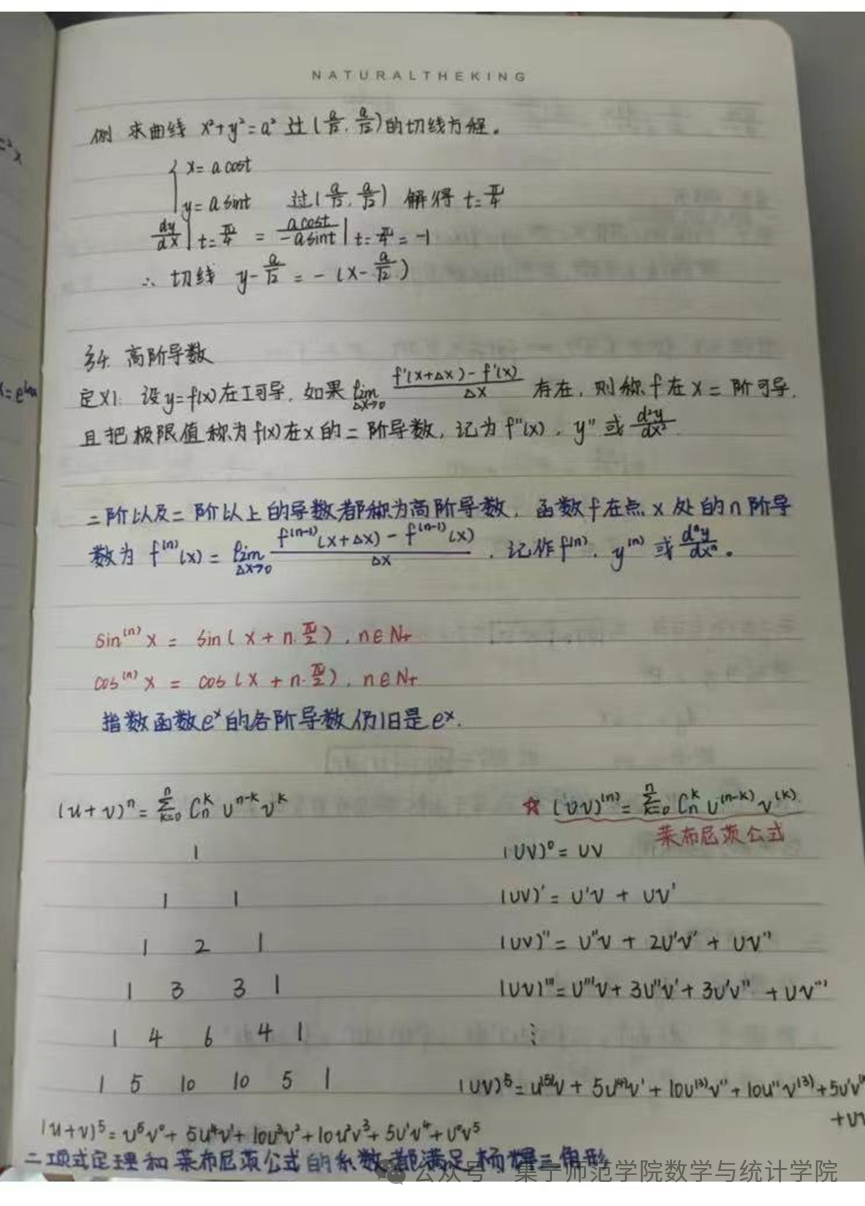 NATURALTHEKING
例 求曲线 x²+y²=a² 过(a/√2, a/√2)的切线方程。
{ x=a cost
y=a sint 过(a/√2, a/√2) 解得 t=π/4
dy/dx|t=π/4 = a cost/-a sint|t=π/4 = -1
∴ 切线 y-a/√2 = -(x-a/√2)
§4. 高阶导数
定义1: 设y=f(x)在I可导, 如果 lim Δx→0 f'(x+Δx)-f'(x)/Δx 存在, 则称f在x二阶可导,
且把极限值称为f(x)在x的二阶导数, 记为f''(x), y''或d²y/dx².
二阶以及二阶以上的导数都称为高阶导数, 函数f在点x处的n阶导
数为 f⁽ⁿ⁾(x) = lim Δx→0 f⁽ⁿ⁻¹⁾(x+Δx) - f⁽ⁿ⁻¹⁾(x)/Δx , 记作f⁽ⁿ⁾, y⁽ⁿ⁾ 或 dⁿy/dxⁿ。
sin⁽ⁿ⁾x = sin(x+n·π/2), n∈N₊
cos⁽ⁿ⁾x = cos(x+n·π/2), n∈N₊
指数函数eˣ的各阶导数仍旧是eˣ.
(u+v)ⁿ = Σ(k=0→n) Cₙᵏ uⁿ⁻ᵏ vᵏ ☆ (uv)⁽ⁿ⁾ = Σ(k=0→n) Cₙᵏ u⁽ⁿ⁻ᵏ⁾ v⁽ᵏ⁾.
莱布尼茨公式
1 (uv)⁰ = uv
1 1 (uv)' = u'v + uv'
1 2 1 (uv)'' = u''v + 2u'v' + uv''
1 3 3 1 (uv)''' = u'''v + 3u''v' + 3u'v'' + uv'''
1 4 6 4 1 ⋮
1 5 10 10 5 1 (uv)⁵ = u⁽⁵⁾v + 5u⁽⁴⁾v' + 10u⁽³⁾v'' + 10u''v⁽³⁾ + 5u'v⁽⁴
+uv
(u+v)⁵ = u⁵v⁰ + 5u⁴v¹ + 10u³v² + 10u²v³ + 5u¹v⁴ + u⁰v⁵
二项式定理和莱布尼茨公式的系数都满足杨辉三角形
公众号·集宁师范学院数学与统计学院